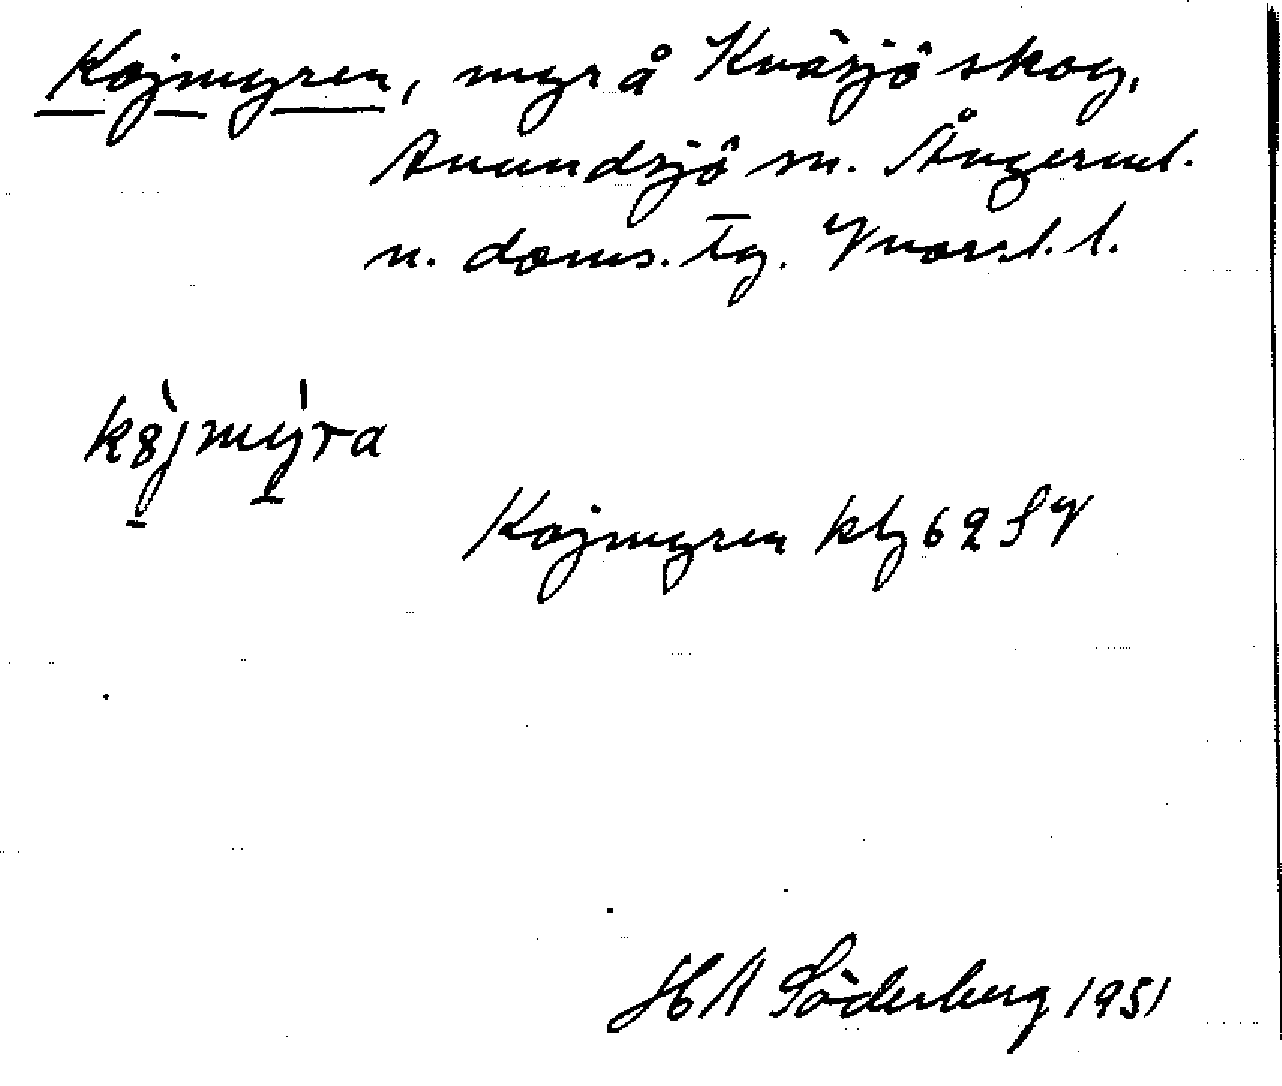 Kojmyren, myr å Kväsjö skog,
Anundsjö sn. Ångerml.
n. doms. tg. Vnorrl. l.
kojmyra
Kojmyren kbl 62 SV
H A Söderberg 1951